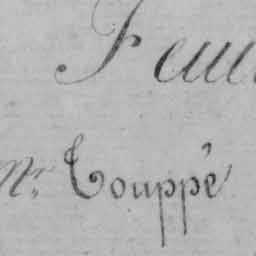 Feui
Mr. Touppé